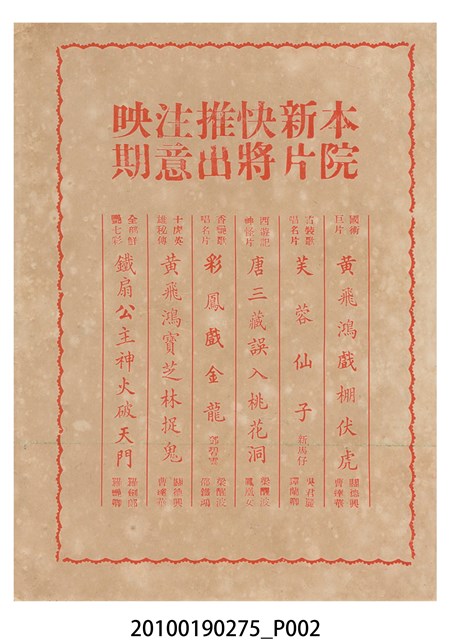 本院
新片
快將
推出
注意
映期
國術
巨片
黃飛鴻戲棚伏虎
關德興
曹達華
古裝歌
唱名片
芙蓉仙子
新馬仔
吳君麗
譚蘭卿
西遊記
神怪片
唐三藏誤入桃花洞
梁醒波
鳳凰女
香艷歌
唱名片
彩鳳戲金龍
鄧碧雲
梁醒波
十虎英
雄秘傳
黃飛鴻寶芝林捉鬼
關德興
曹達華
全部鮮
艷七彩
鐵扇公主神火破天門
羅艷卿
20100190275_P002